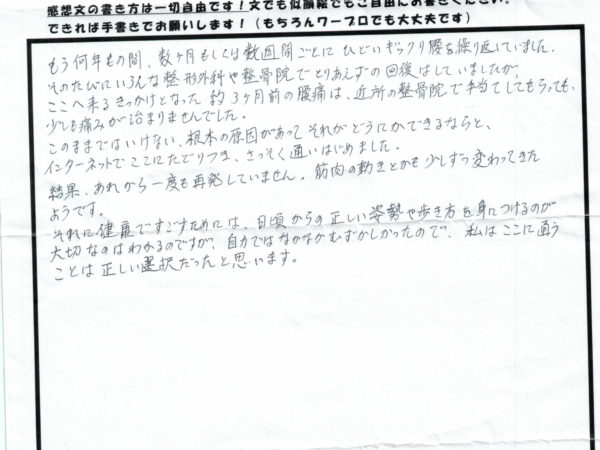 感想文の書き方は一切自由です！文でも似顔絵でもご自由にお書きください。
できれば手書きでお願いします！（もちろんワープロでも大丈夫です）
もう何年もの間、数ヶ月もしくは数週間ごとに ひどいギックリ腰を繰り返していました。
そのたびにいろんな整形外科や整骨院でとりあえずの回復はしていましたが、
ここへ来るきっかけとなった 約3ヶ月前の腰痛は、近所の整骨院で手当てしてもらっても、
少しも痛みが治まりませんでした。
このままではいけない、根本の原因があって それがどうにかできるならと、
インターネットでここにたどりつき、さっそく通いはじめました。
結果、あれから一度も再発していません。筋肉の動きとかも少しずつ変わってきた
ようです。
それに健康ですごすためには、日頃からの正しい姿勢や歩き方を身につけるのが
大切なのはわかるのですが、自力ではなかなかむずかしかったので、私はここに通う
ことは正しい選択だったと思います。